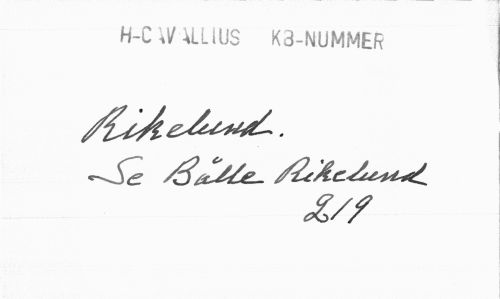 H-CAVALLIUS KB-NUMMER
Rikelund.
Se Bälle Rikelund
219